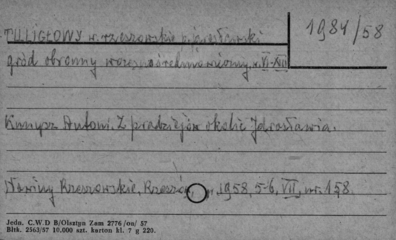 1984/58
TULIGŁOWY w. rzeszowskie p. jarosławski
gród obronny wczesnośredniowieczny, w. VI-XIII
Kunysz Antoni. Z pradziejów okolic Jarosławia.
Nowiny Rzeszowskie, Rzeszów, 1958, 5-6, VII, nr. 158.
Jedn. C.W.D B/Olsztyn Zam 2776/on/ 57
Bltk. 2563/57 10.000 szt. karton kl. 7 g 220.